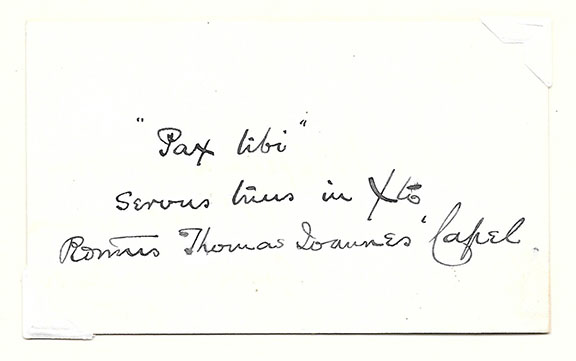 "Pax tibi"
Servus tuus in Xto
Romūs Thomas Ioannes Capel